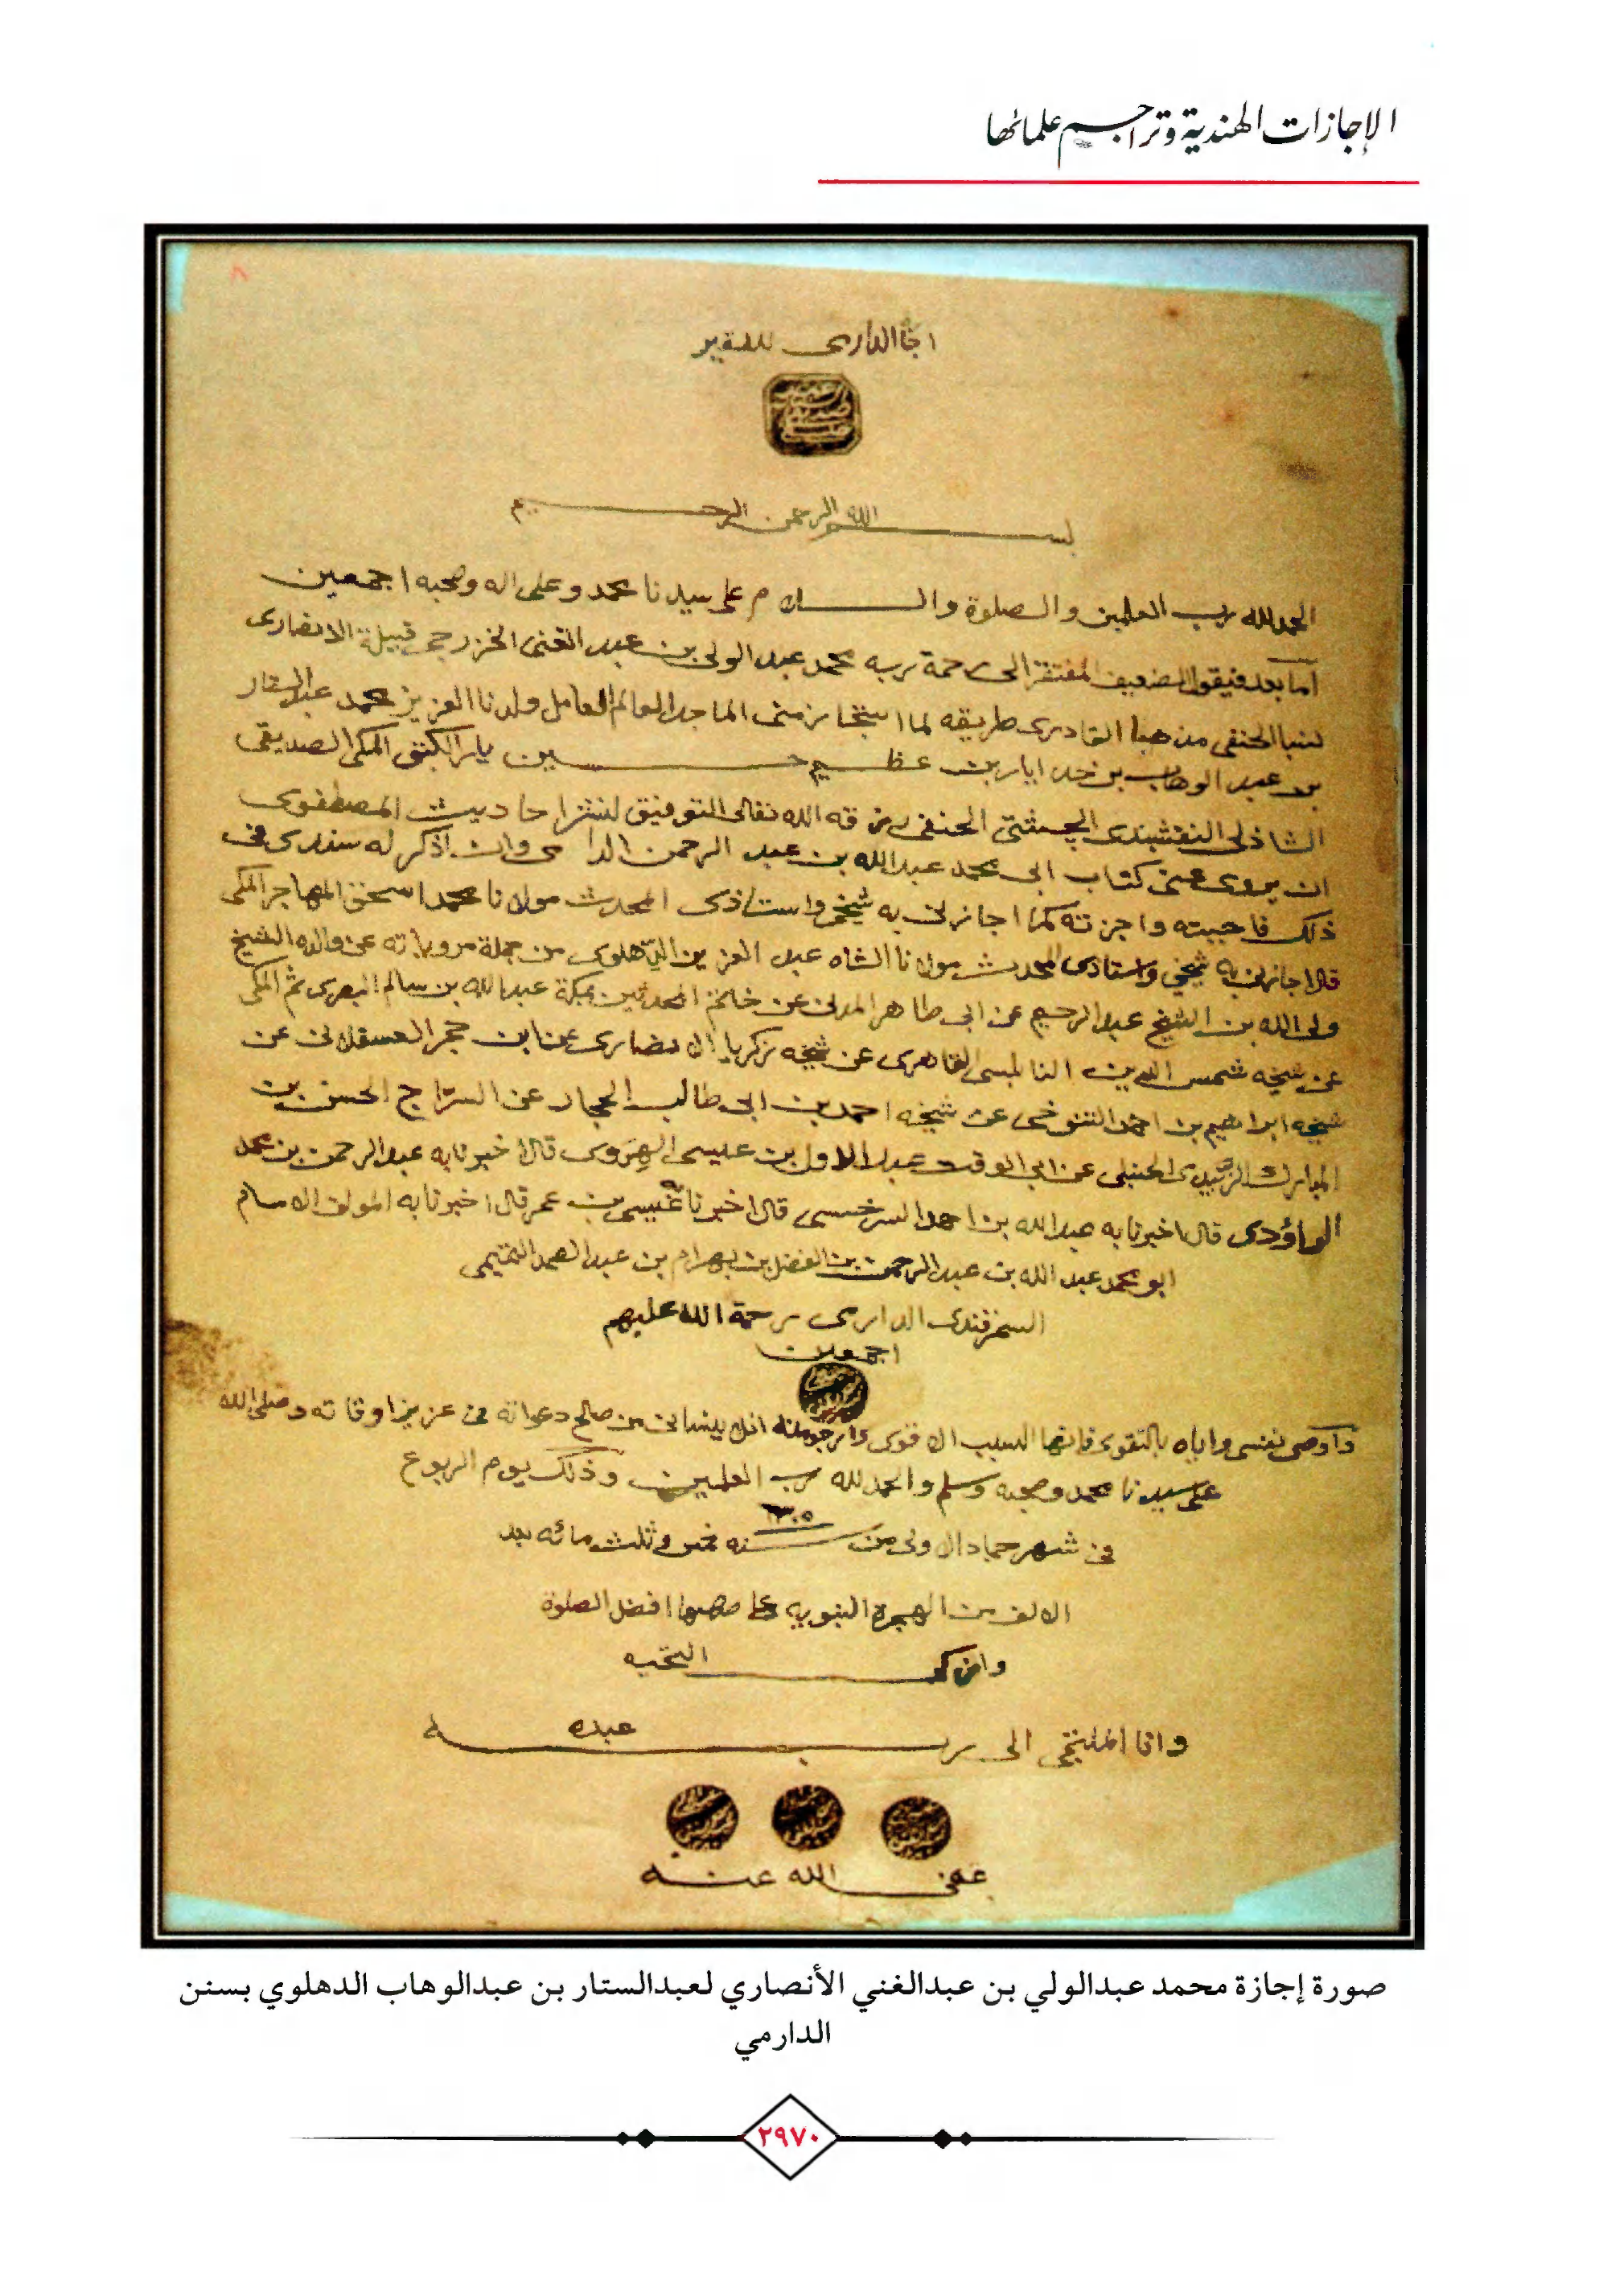 الإجازات الهندية وتراجم علمائها
الدارمى للفقير
بسم الله الرحمن الرحيم
الحمد لله رب العلمين والصلوة والسلام على سيدنا محمد وعلى اله وصحبه اجمعين
اما بعد فيقول الضعيف المفتقر الى رحمة ربه محمد عبد الولى بن عبد الغنى الخزرجى قبيلة الانصارى
نسبا الحنفى مذهبا القادرى طريقه لما استجاز منى الماجد العالم العامل ولدنا العزيز محمد عبد الستار
بن عبد الوهاب بن خدايار بن عظيم حسين يار الكتبى المكى الصديقى
الشاذلى النقشبندى الچشتى الحنفى رزقه الله تعالى التوفيق لنشر احاديث المصطفوى
ان يروى عنى كتاب ابى محمد عبد الله بن عبد الرحمن الدارمى وان اذكر له سندى فى
ذلك فاجبيته واجزته كما اجازنى به شيخى واستاذى المحدث مولانا محمد اسحق المهاجر المكى
قال اجازنى به شيخي واستاذى المحدث مولانا الشاه عبد العزيز الدّهلوى من جملة مروياته عن والده الشيخ
ولى الله بن الشيخ عبد الرحيم عن ابى طاهر المدنى عن خاتم المحدثين بمكة عبد الله بن سالم البصرى ثم المكى
عن شيخه شمس الدين النابلسى القاهرى عن شيخه زكريا الانصارى عن ابن حجر العسقلانى عن
شيخه ابراهيم بن احمد التنوخى عن شيخه احمد بن ابى طالب الحجار عن السرّاج الحسن بن
المبارك الزبيدى الحنبلى عن ابى الوقت عبد الاول بن عيسى الهروى قال اخبرنا به عبد الرحمن بن محمد
الداؤدى قال اخبرنا به عبد الله بن احمد السرخسى قال اخبرنا عيسى بن عمر قال اخبرنا به المولف الامام
ابو محمد عبد الله بن عبد الرحمن بن الفضل بن بهرام بن عبد الصمد التميمى
السمرقندى الدارمى رحمة الله عليهم
اجمعين
واوصى نفسى واياه بالتقوى فانها السبب الاقوى وارجو منه ان لا ينسانى من صالح دعواته فى عزيز اوقاته وصلى الله
على سيدنا محمد وصحبه وسلم والحمد لله رب العلمين وذلك يوم الربوع
فى شهر جماد الاولى من سنه ١٣٠٥ خمس وثلث مائه بعد
الالف من الهجرة النبويه على صاحبها افضل الصلوة
وازكى التحيه
وانا الملتجى الى ربه عبده
عفى الله عنه
صورة إجازة محمد عبدالولي بن عبدالغني الأنصاري لعبدالستار بن عبدالوهاب الدهلوي بسنن
الدارمي
٢٩٧٠